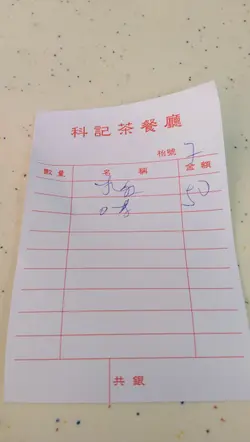 科記茶餐廳
枱號 7
數量 名稱 金額
50
共銀